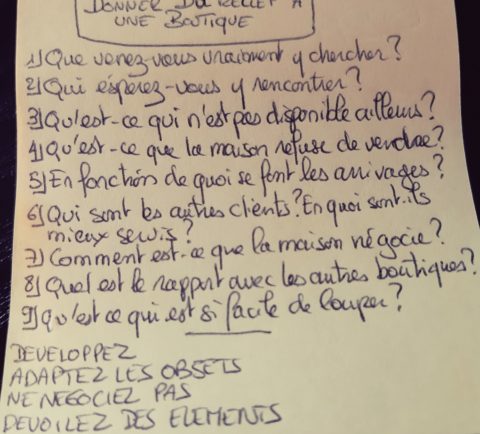 DONNER DU RELIEF A
UNE BOUTIQUE
1) Que venez-vous vraiment y chercher?
2) Qui espérez-vous y rencontrer?
3) Qu'est-ce qui n'est pas disponible ailleurs?
4) Qu'est-ce que la maison refuse de vendre?
5) En fonction de quoi se font les arrivages?
6) Qui sont les autres clients? En quoi sont-ils
mieux servis?
7) Comment est-ce que la maison négocie?
8) Quel est le rapport avec les autres boutiques?
9) Qu'est ce qui est si facile de louper?
DEVELOPPEZ
ADAPTEZ LES OBSETS
NE NEGOCIEZ PAS
DEVOILEZ DES ELEMENTS